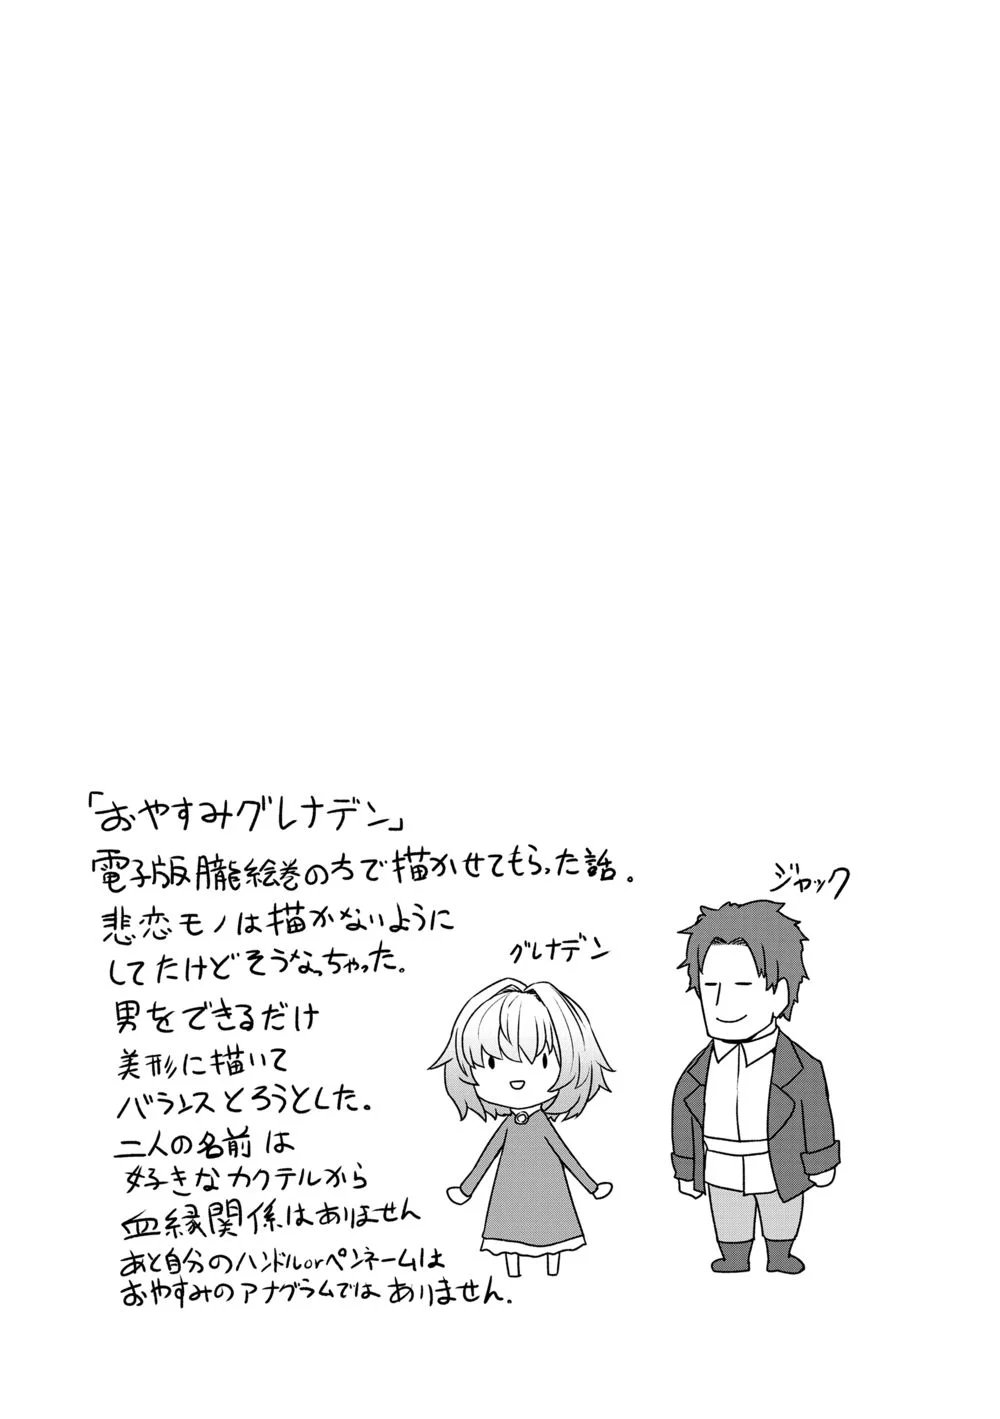 「おやすみグレナデン」
電子版朧絵巻の方で描かせてもらった話。
悲恋モノは描かないように
してたけどそうなっちゃった。
男をできるだけ
美形に描いて
バランスとろうとした。
二人の名前は
好きなカクテルから
血縁関係はありません
あと自分のハンドルorペンネームは
おやすみのアナグラムではありません.
グレナデン
ジャック